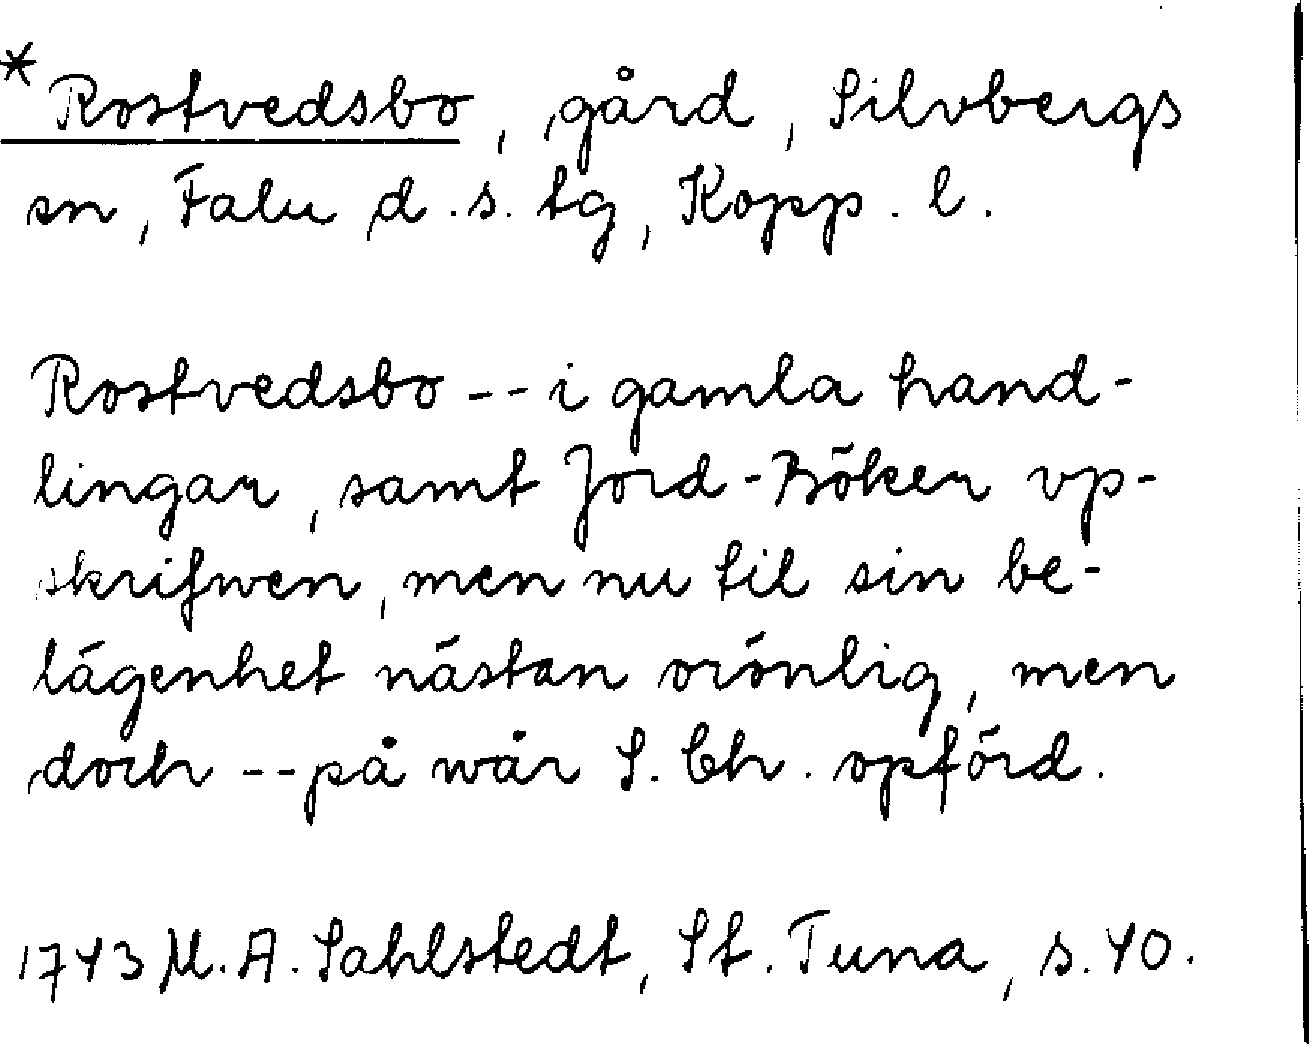 *Rostvedsbo, gård, Silvbergs
sn, Falu d.s. tg, Kopp. l.
Rostvedsbo -- i gamla hand-
lingar, samt Jord-Böker vp-
skrifwen, men nu til sin be-
lägenhet nästan orönlig, men
doch -- på wår S. Ch. opförd.
1743 M. A. Sahlstedt, St. Tuna, s. 40.